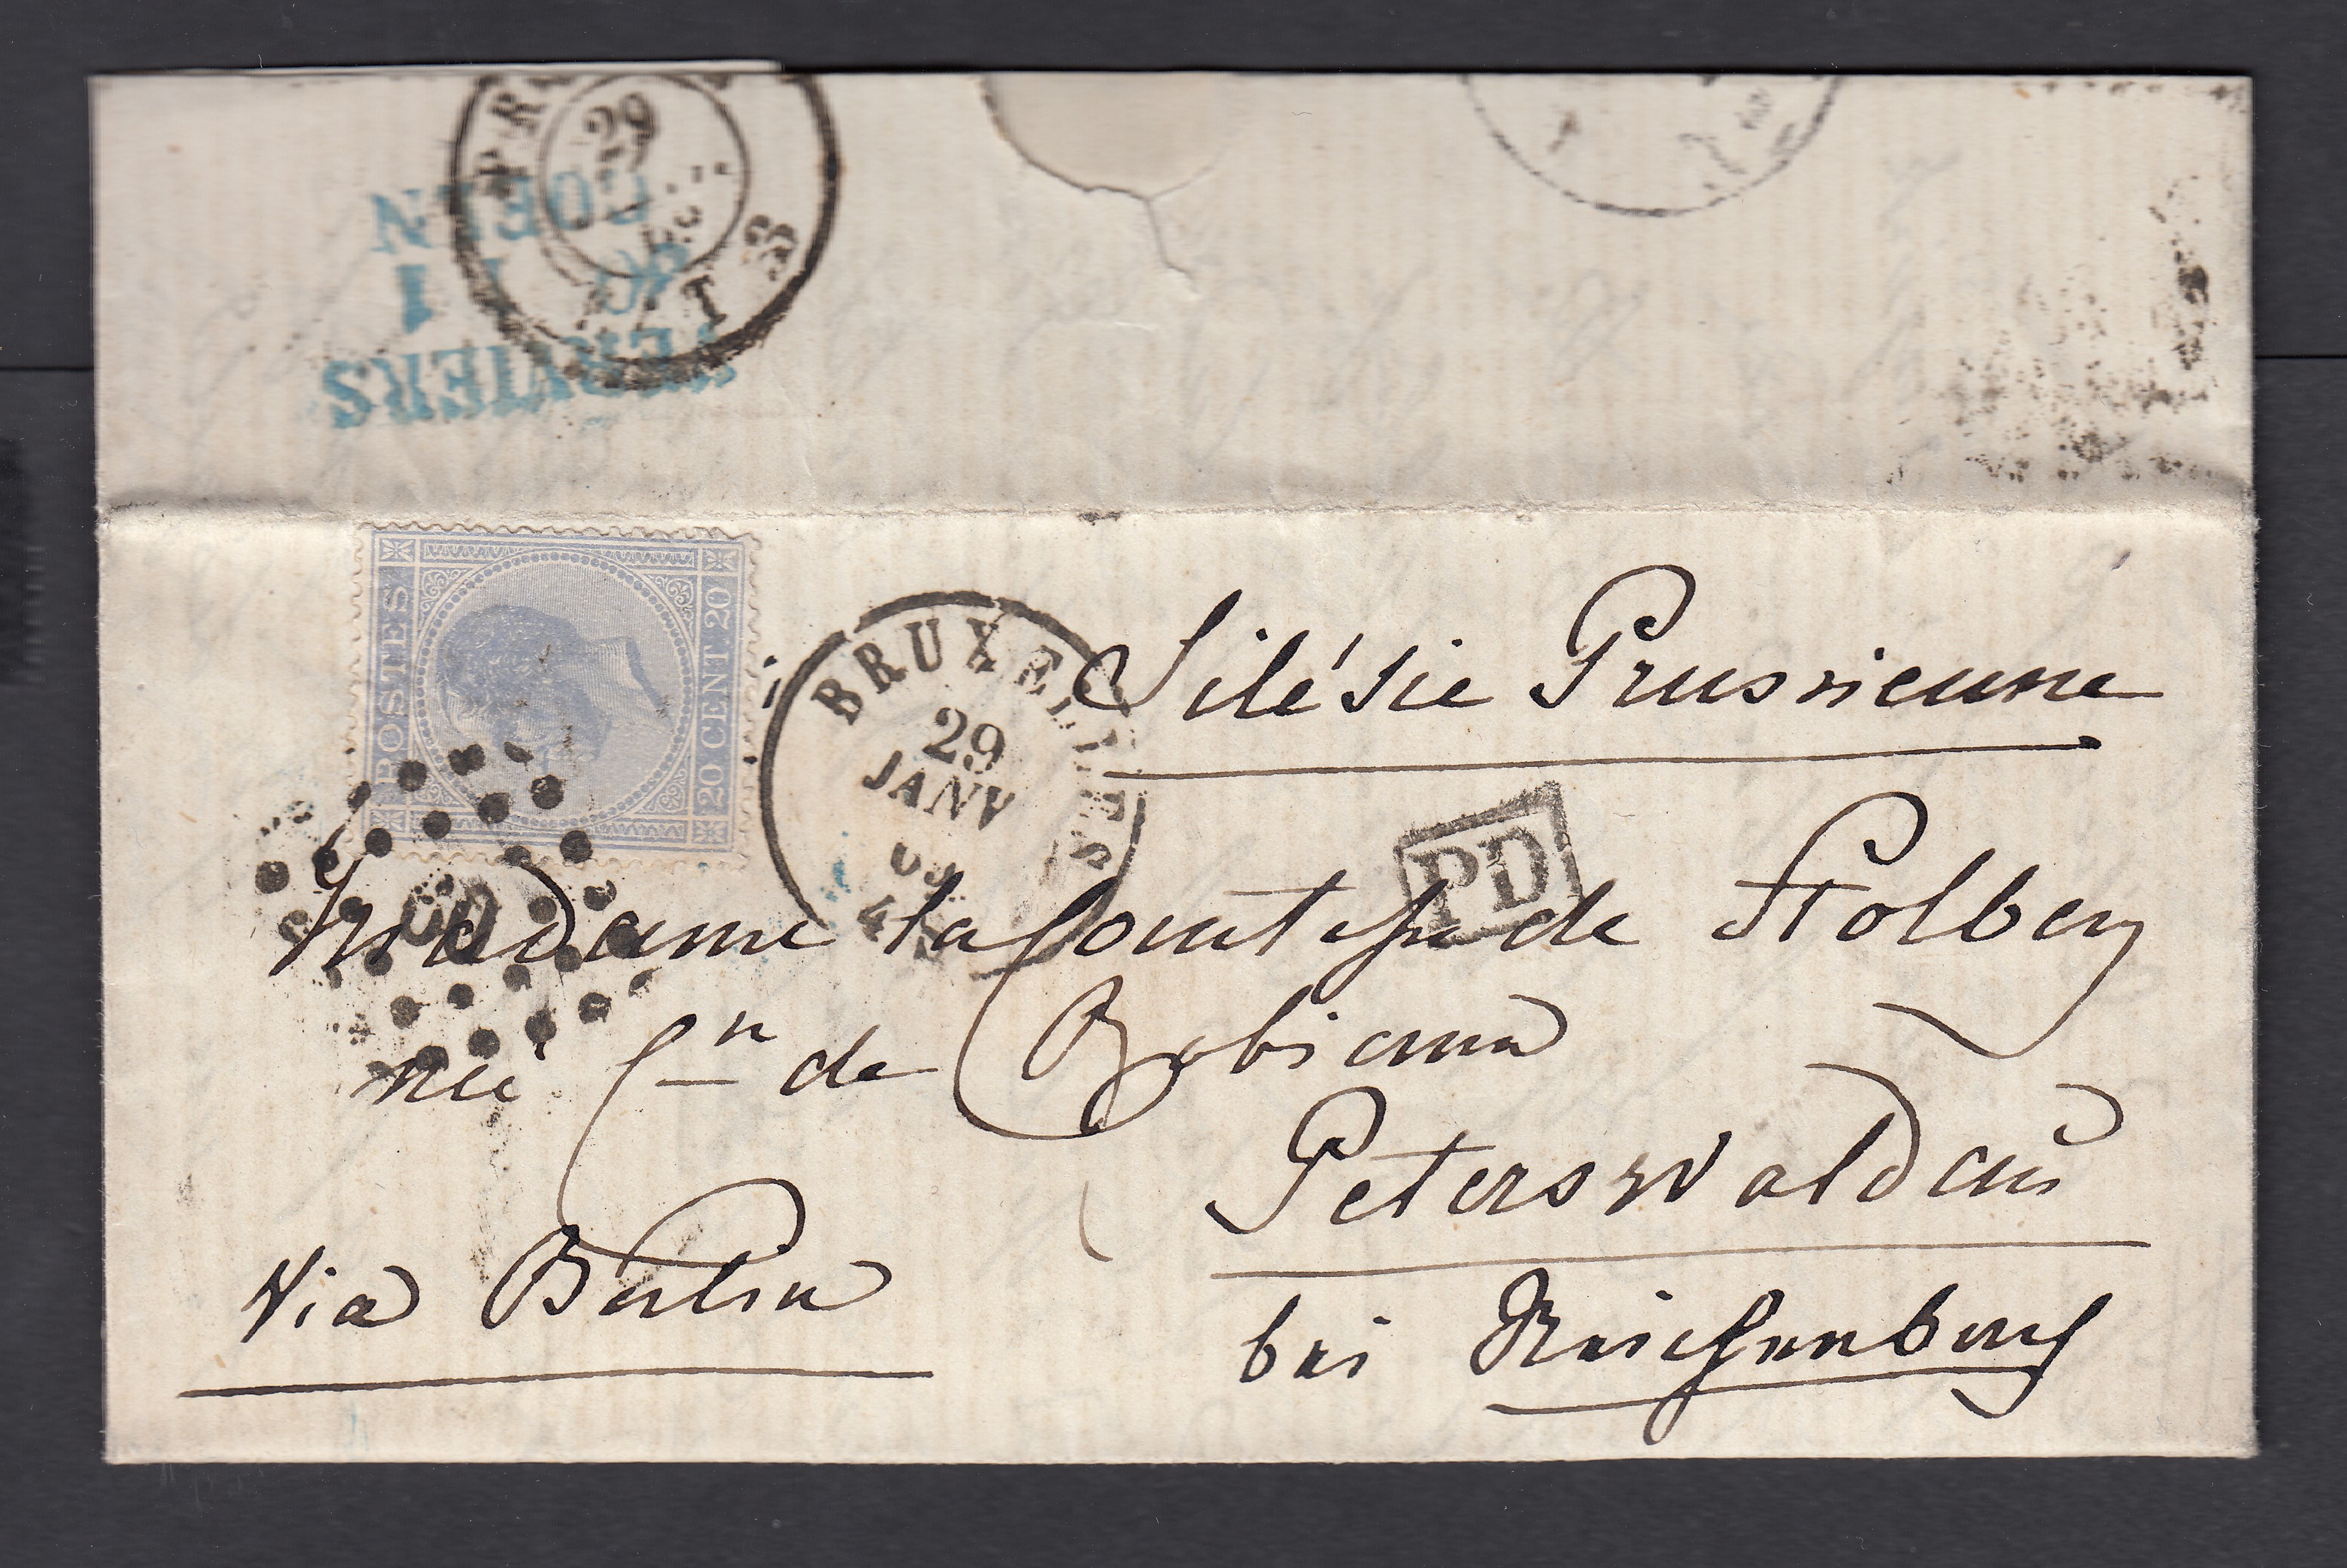 29
3
COELN
VERVIERS
POSTES
20 CENT. 20
BRUXELLES
29
JANV
4
60
PD
Silésie Prussienne
Madame la Comtesse de Stolberg
née Cn de
Peterswaldau
Via Berlin
bei Reichenbach